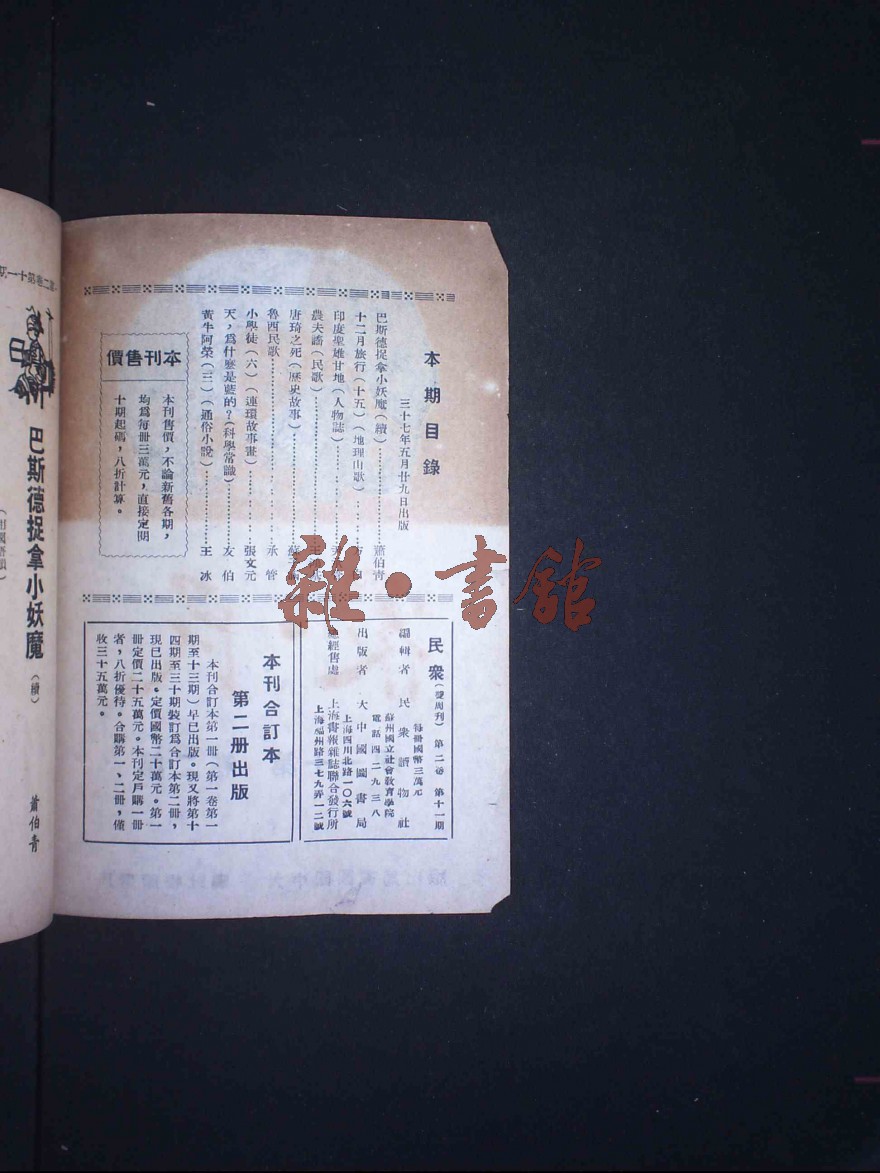 本期目錄
三十七年五月廿九日出版
巴斯德捉拿小妖魔(續)…………蕭伯青
十二月旅行(十五)(地理山歌)…………
印度聖雄甘地(人物誌)…………
農夫謠(民歌)…………
唐琦之死(歷史故事)…………
魯西民歌…………承管
小學徒(六)(連環故事畫)…………張文元
天,爲什麽是藍的?(科學常識)…………友伯
黃牛阿榮(三)(通俗小說)…………王冰
本刊售價
本刊售價,不論新舊各期,
均爲每冊三萬元,直接定閱
十期起碼,八折計算。
民衆(雙周刊)第二卷 第十一期
每冊國幣三萬元
編輯者 民衆讀物社
蘇州國立社會教育學院
電話四二九三八
出版者 大中國圖書局
上海四川北路一〇六號
總經售處 上海書報雜誌聯合發行所
上海福州路三七九弄一二號
本刊合訂本
第二册出版
本刊合訂本第一冊(第一卷第一
期至十三期)早已出版。現又將第十
四期至三十期裝訂爲合訂本第二冊,
現已出版。定價國幣二十萬元。第一
冊定價二十五萬元。本刊定戶購一冊
者,八折優待。合購第一、二冊,僅
收三十五萬元。
第二卷第十一期
巴斯德捉拿小妖魔(續)
蕭伯青
雜·書館